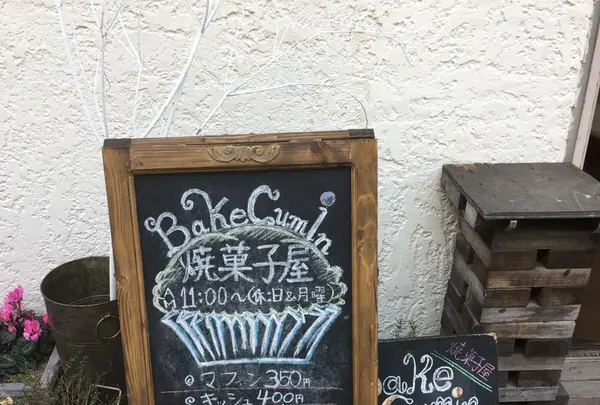 BakeCumIn
焼菓子屋
11:00〜(休:日&月曜)
◎ マフィン 350円
◎ キッシュ 400円
焼菓子屋
ake